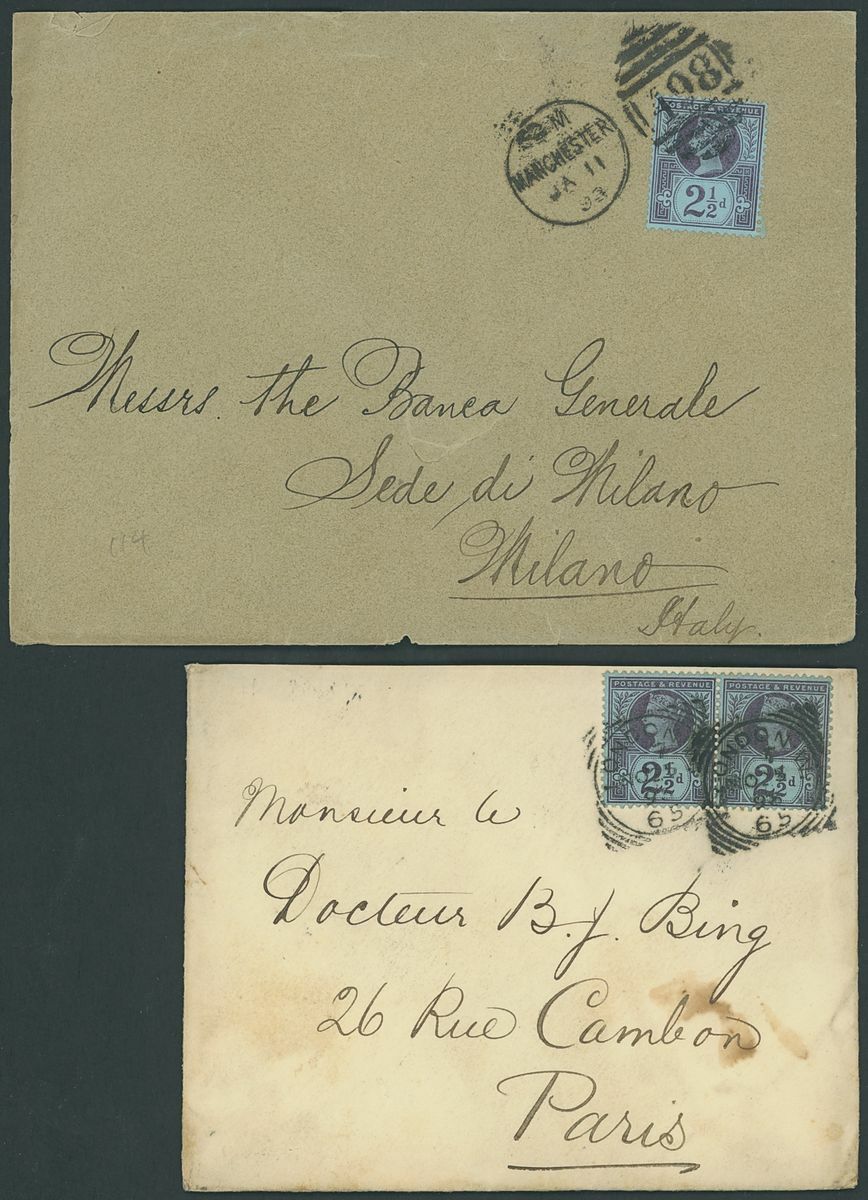 M
MANCHESTER
JA 11
93
498
POSTAGE & REVENUE
2½d
Messrs. the Banca Generale
Sede di Milano
Milano
Italy.
114
POSTAGE & REVENUE
2½d
POSTAGE & REVENUE
2½d
LONDON
65
LONDON
65
Monsieur le
Docteur B. J. Bing
26 Rue Cambon
Paris